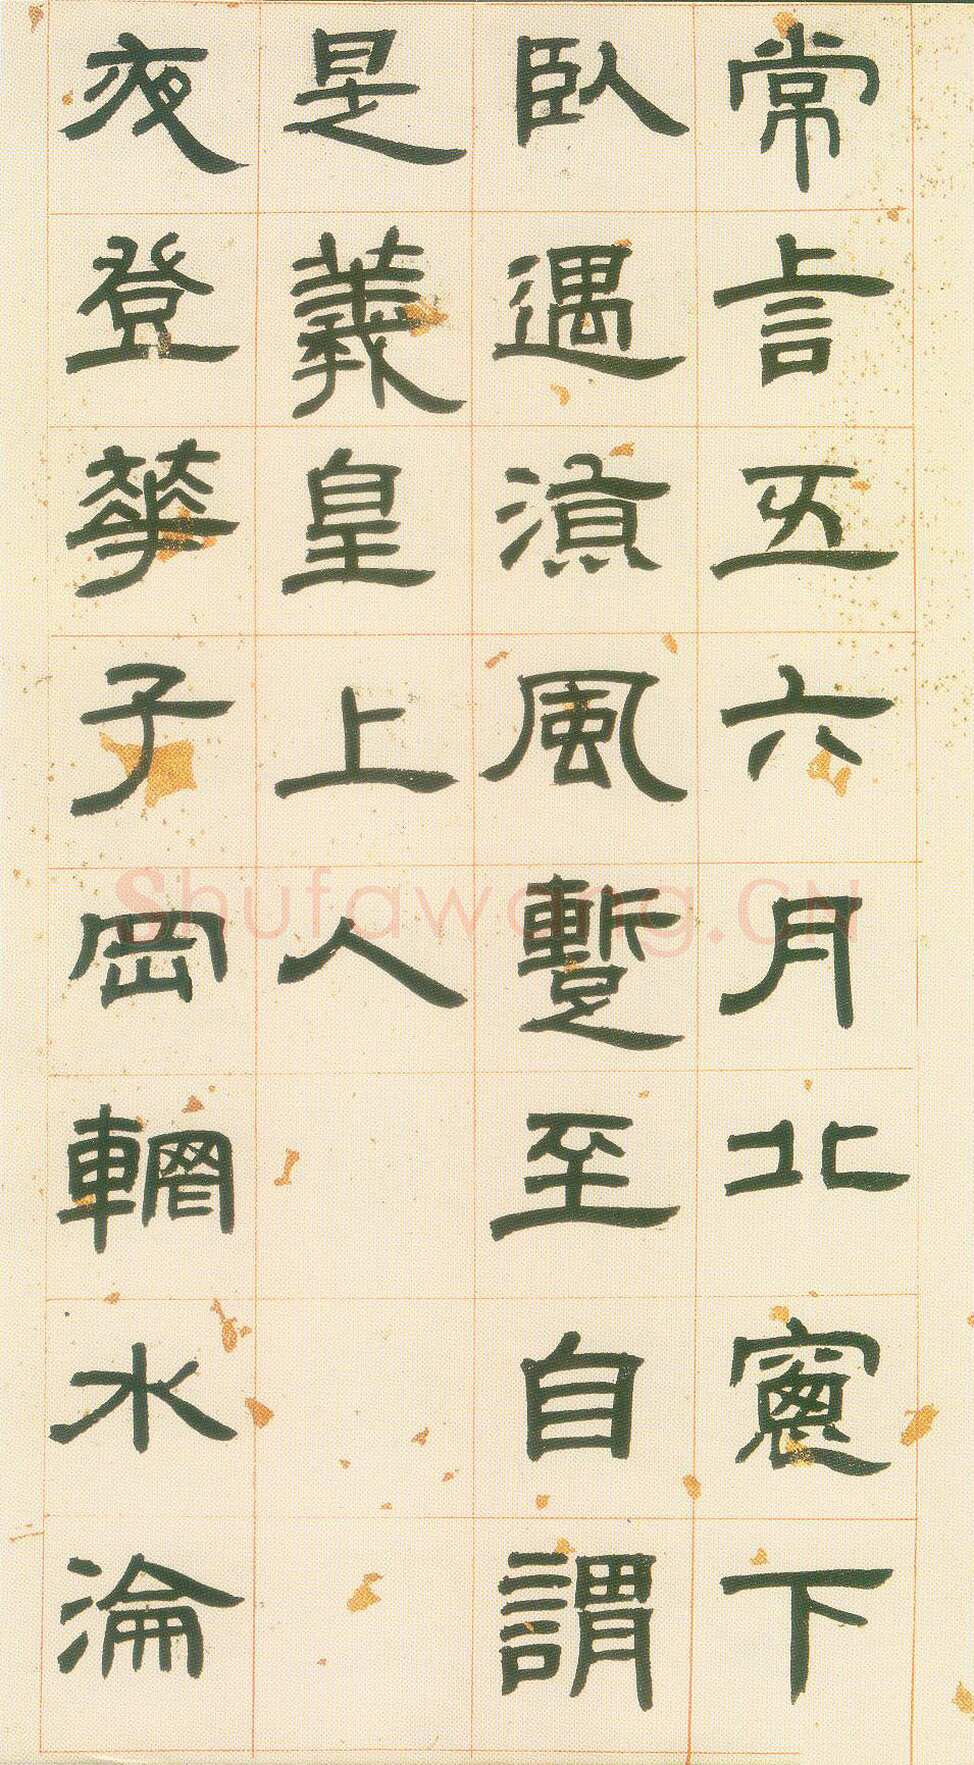 常言五六月北窗下
臥遇涼風暫至自謂
是羲皇上人
夜登華子岡輞水淪
Shufawang.CN